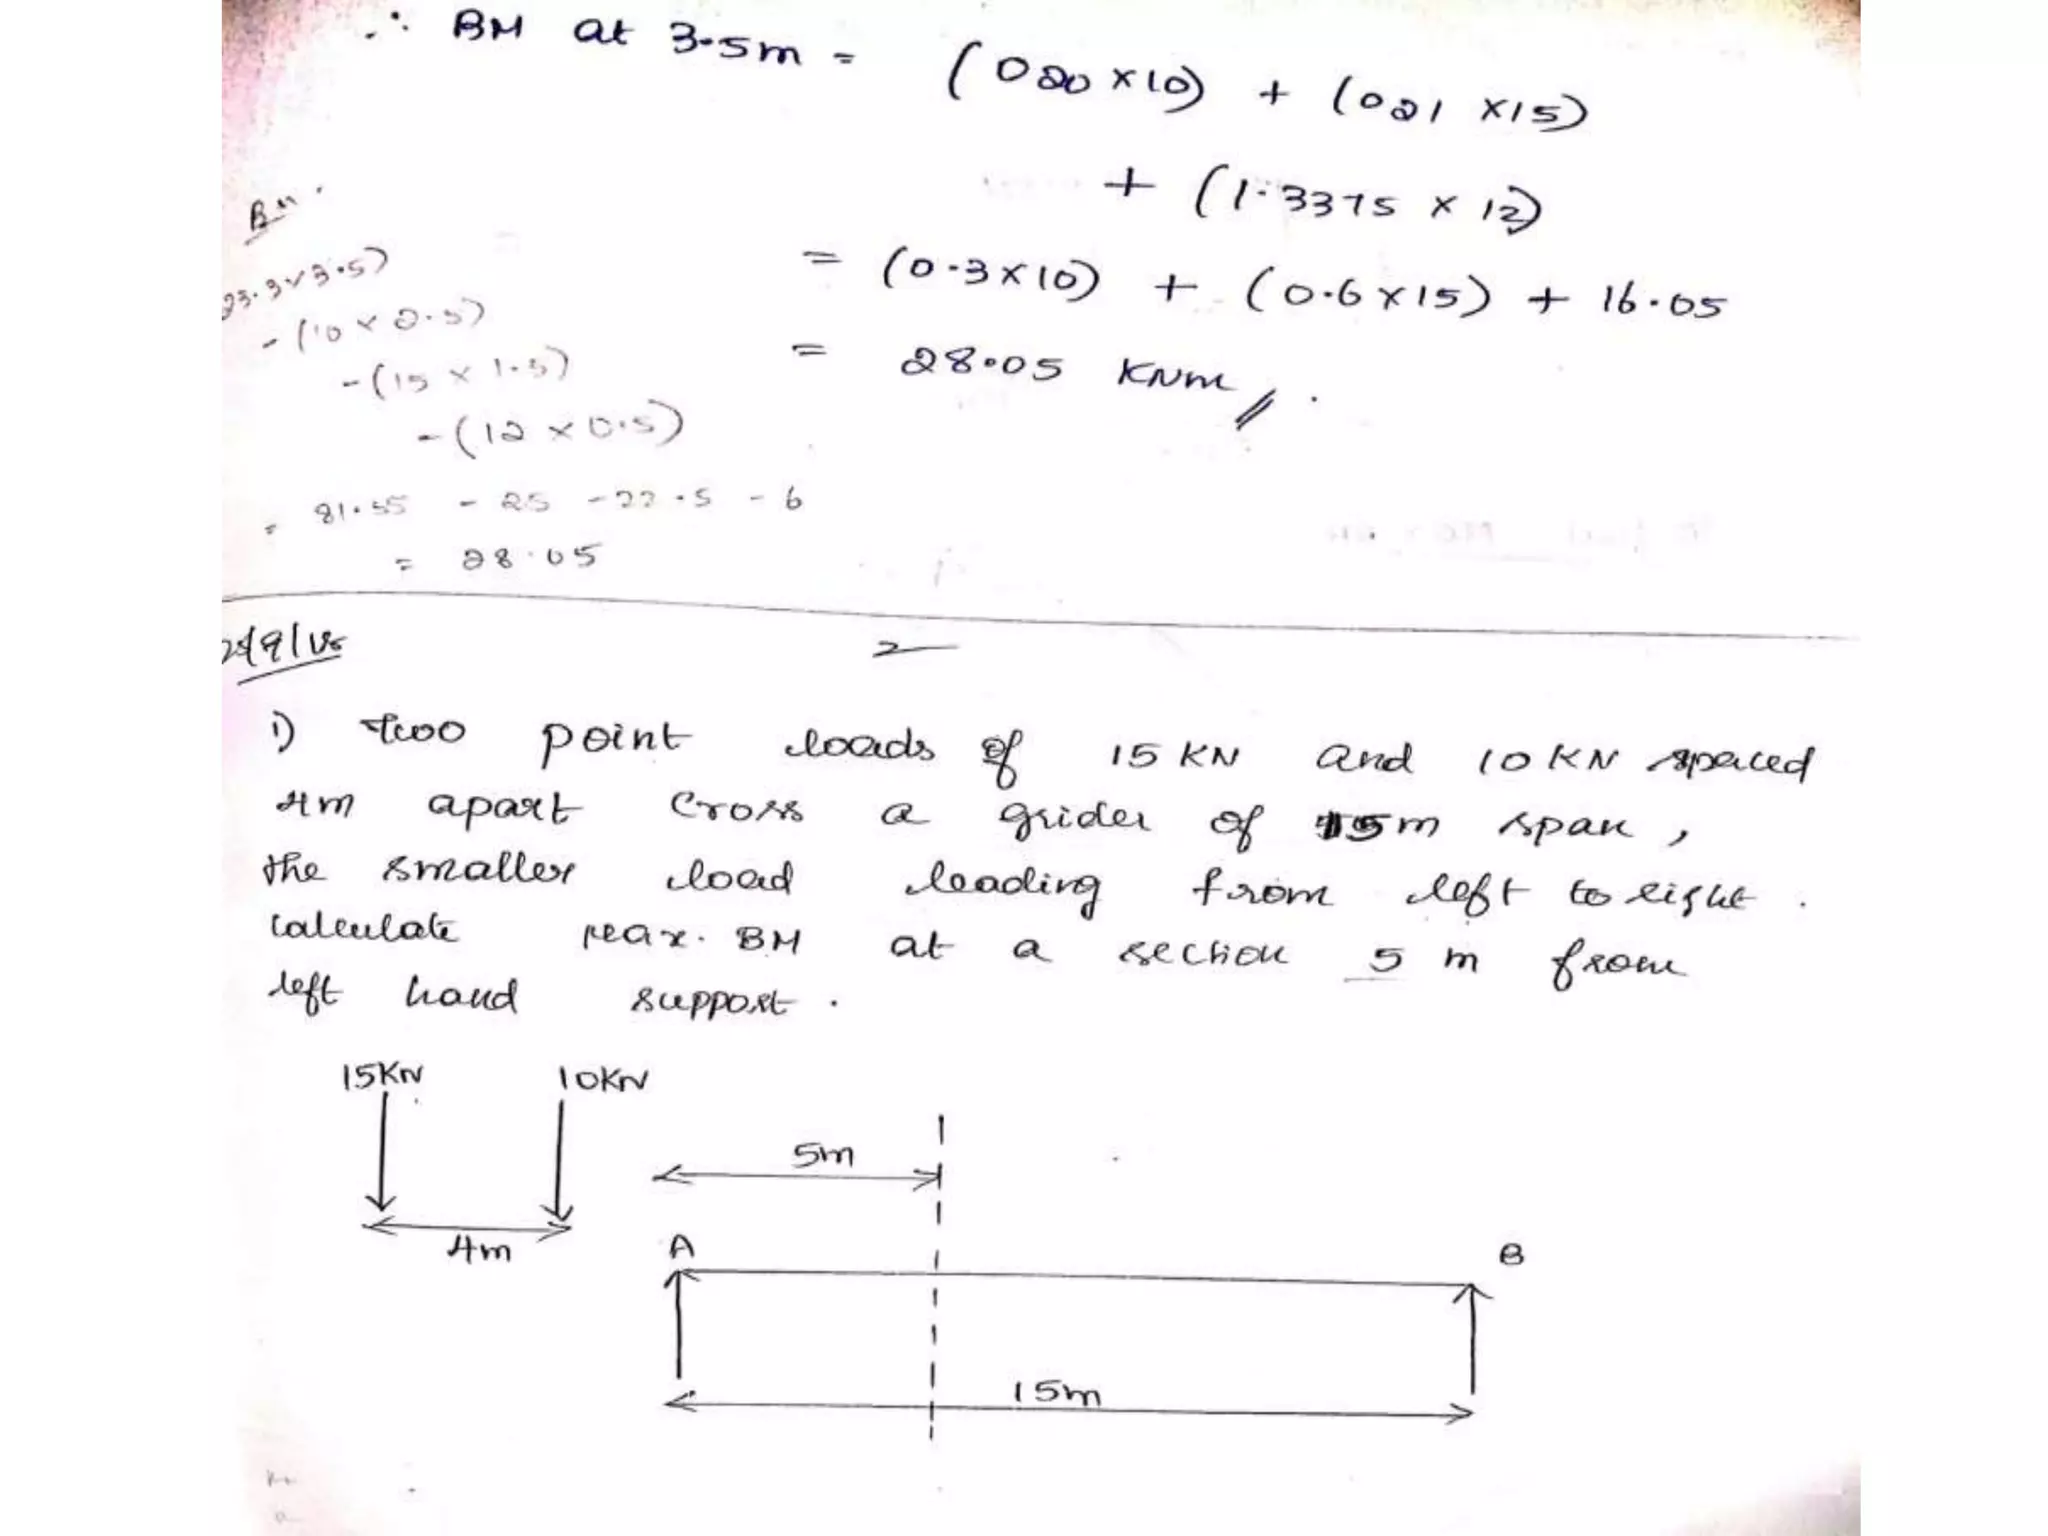 ∴ BM at 3.5m = (020 × 10) + (021 × 15)
+ (1.3375 × 12)
= (0.3×10) + (0.6×15) + 16.05
= 28.05 KNm
BM.
23.3×3.5)
- (10 × 2.5)
- (15 × 1.5)
- (12 × 0.5)
= 81.55 - 25 - 22.5 - 6
= 28.05
2
1) Two point loads of 15 KN and 10 KN spaced
4m apart cross a grider of 15m span,
the smaller load leading from left to right.
Calculate max. BM at a section 5 m from
left hand support.
15KN 10KN
5m
4m
A B
15m